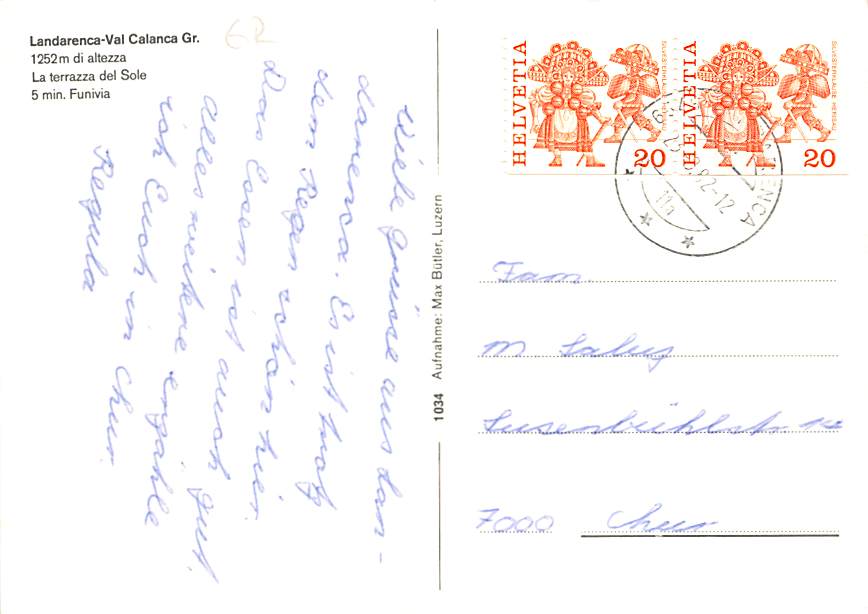 Landarenca-Val Calanca Gr.
1252 m di altezza
La terrazza del Sole
5 min. Funivia
62
Viele Grüsse aus Lan-
darenca. Es ist trotz
dem Regen schön hier.
Das Essen ist auch gut.
Alles weitere erzähle
ich Euch in Chur.
Regula
1034 Aufnahme: Max Bütler, Luzern
HELVETIA
SILVESTERKLÄUSE HERISAU
20
HELVETIA
SILVESTERKLÄUSE HERISAU
20
82-12
11a
Fam.
M Saluz
Susenbühlstr
7000 Chur